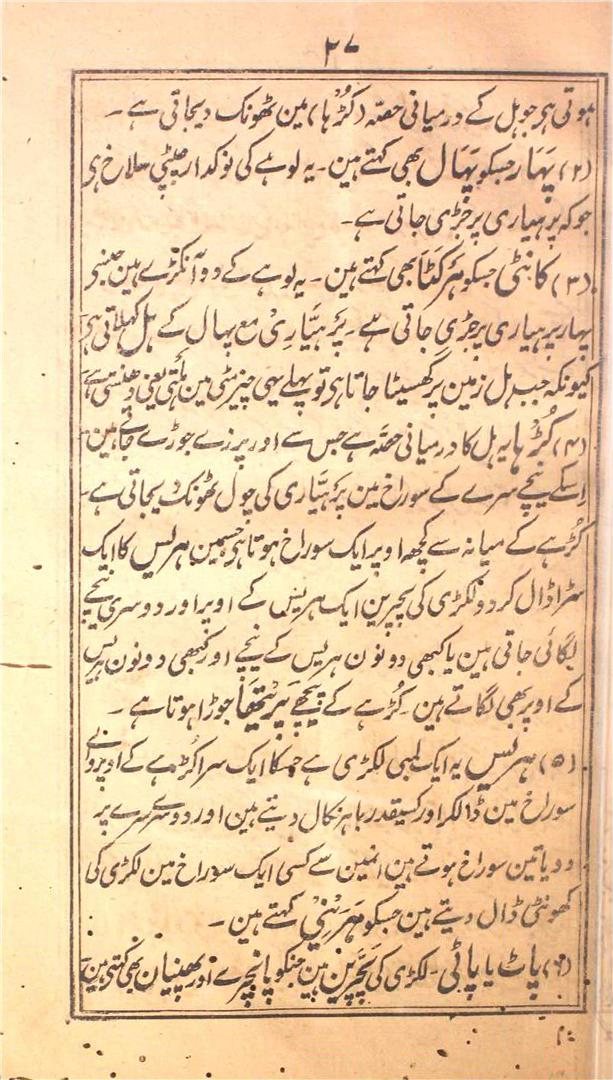 ۲۷
ہوتی ہی جو ہل کے درمیانی حصہ (کُڑْہا) مین ٹھونک دیجاتی ہے۔
(۲) پَہَار جسکو پَہَال بھی کہتے ہین۔ یہ لوہے کی نوکدار چپٹی سلاخ ہی
جو کہ پرہیاری پر جڑی جاتی ہے۔
(۳) کانٹی جسکو ہَرکَنَّا بھی کہتے ہین۔ یہ لوہے کے دو آنکڑے ہین جنسے
پہار پرہیاری پر جڑی جاتی ہے۔ پَرْہیَّارِیْ مع پہال کے ہل کہلاتی ہی
کیونکہ جب ہل زمین پر گھسیٹا جاتا ہی تو پہلے یہی چیز مٹی مین ہلتی یعنی دہنستی ہے
(۴) کُڑْہا یہ ہل کا درمیانی حصہ ہے جس سے اور پرزے جوڑے جاتے ہین۔
اِسکے نیچے سرے کے سوراخ مین پرہیَّاری کی چول ٹھونک دیجاتی ہے۔
کُڑہے کے میانہ سے کچھ اوپر ایک سوراخ ہوتا ہی جسمین ہریس کا ایک
سرا ڈال کر دو لکڑی کی پچرین ایک ہریس کے اوپر اور دوسری نیچے
لگائی جاتی ہین یا کبھی دونون ہریس کے نیچے اور کبھی دونون ہریس
کے اوپر بھی لگاتے ہین۔ کُڑہے کے پیچھے پرِتیھَا جوڑا ہوتا ہے۔
(۵) ہریس یہ ایک لمبی لکڑی ہے جسکا ایک سرا کُڑہے کے اوپر والے
سوراخ مین ڈالکر اور کسیقدر باہر نکال دیتے ہین اور دوسرے سرے پر
دو یا تین سوراخ ہوتے ہین انمین سے کسی ایک سوراخ مین لکڑی کی
کھونٹی ڈال دیتے ہین جسکو ہَرَیْنِیْ کہتے ہین۔
(۶) پاٹ یا پاٹی۔ لکڑی کی پَچّرین ہین جنکو پانچرے اور پھنیان بھی کہتی ہین